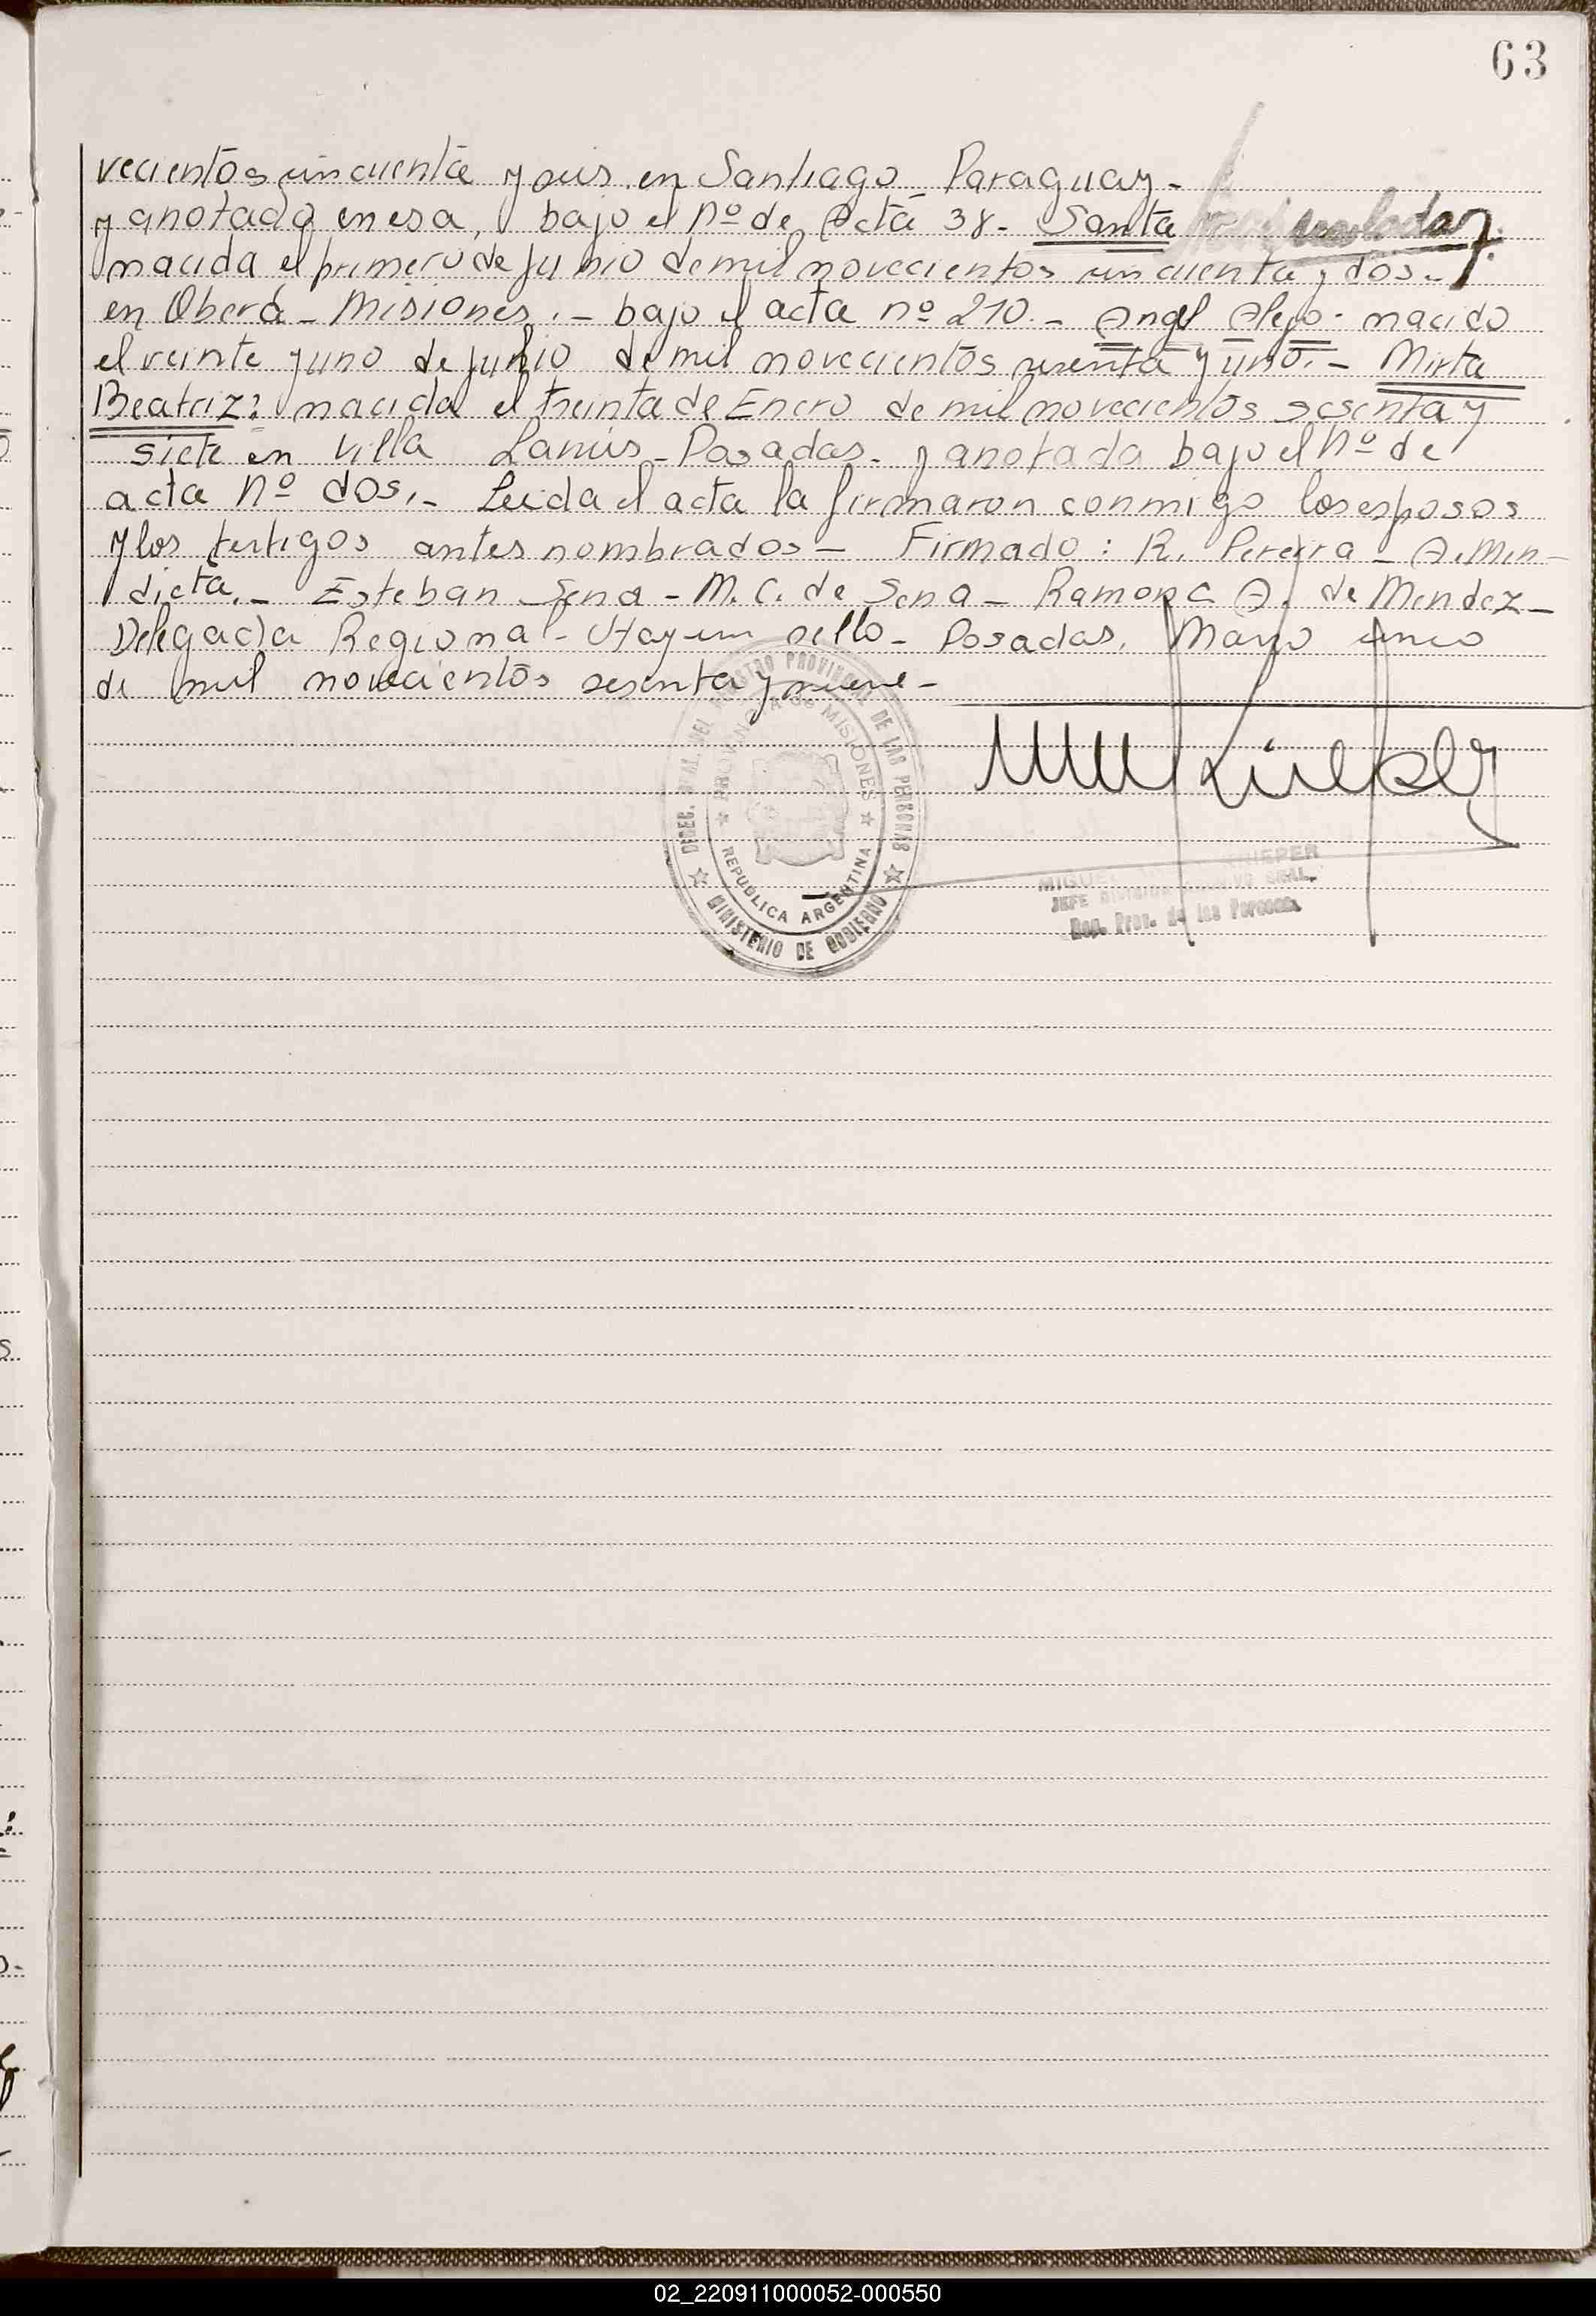 63
vecientos cincuenta y seis en Santiago - Paraguay -
y anotada en esa, bajo el nº de Acta 38 - Santa
nacida el primero de Junio de mil novecientos cincuenta y dos -
en Oberá - Misiones. - bajo el acta nº 210. - Angel Alejo - nacido
el veinte y uno de Julio de mil novecientos sesenta y uno. - Mirta
Beatriz: nacida el treinta de Enero de mil novecientos sesenta y
siete en Villa Lanús - Posadas - y anotada bajo el nº de
acta nº dos. - Leida el acta la firmaron conmigo los esposos
y los testigos antes nombrados - Firmado: R. Pereira - A. Men-
dieta. - Esteban Sena - M. C. de Sena - Ramona A. de Mendez -
Delegada Regional - Hay un sello - Posadas, Mayo cinco
de mil novecientos sesenta y nueve -
DIREC. GRAL. DEL REGISTRO PROVINCIAL DE LAS PERSONAS
PROVINCIA de MISIONES
REPUBLICA ARGENTINA
MINISTERIO DE GOBIERNO
MIGUEL KRIEPER
JEFE DIVISION ARCHIVO GRAL.
Reg. Prov. de las Personas
02_220911000052-000550